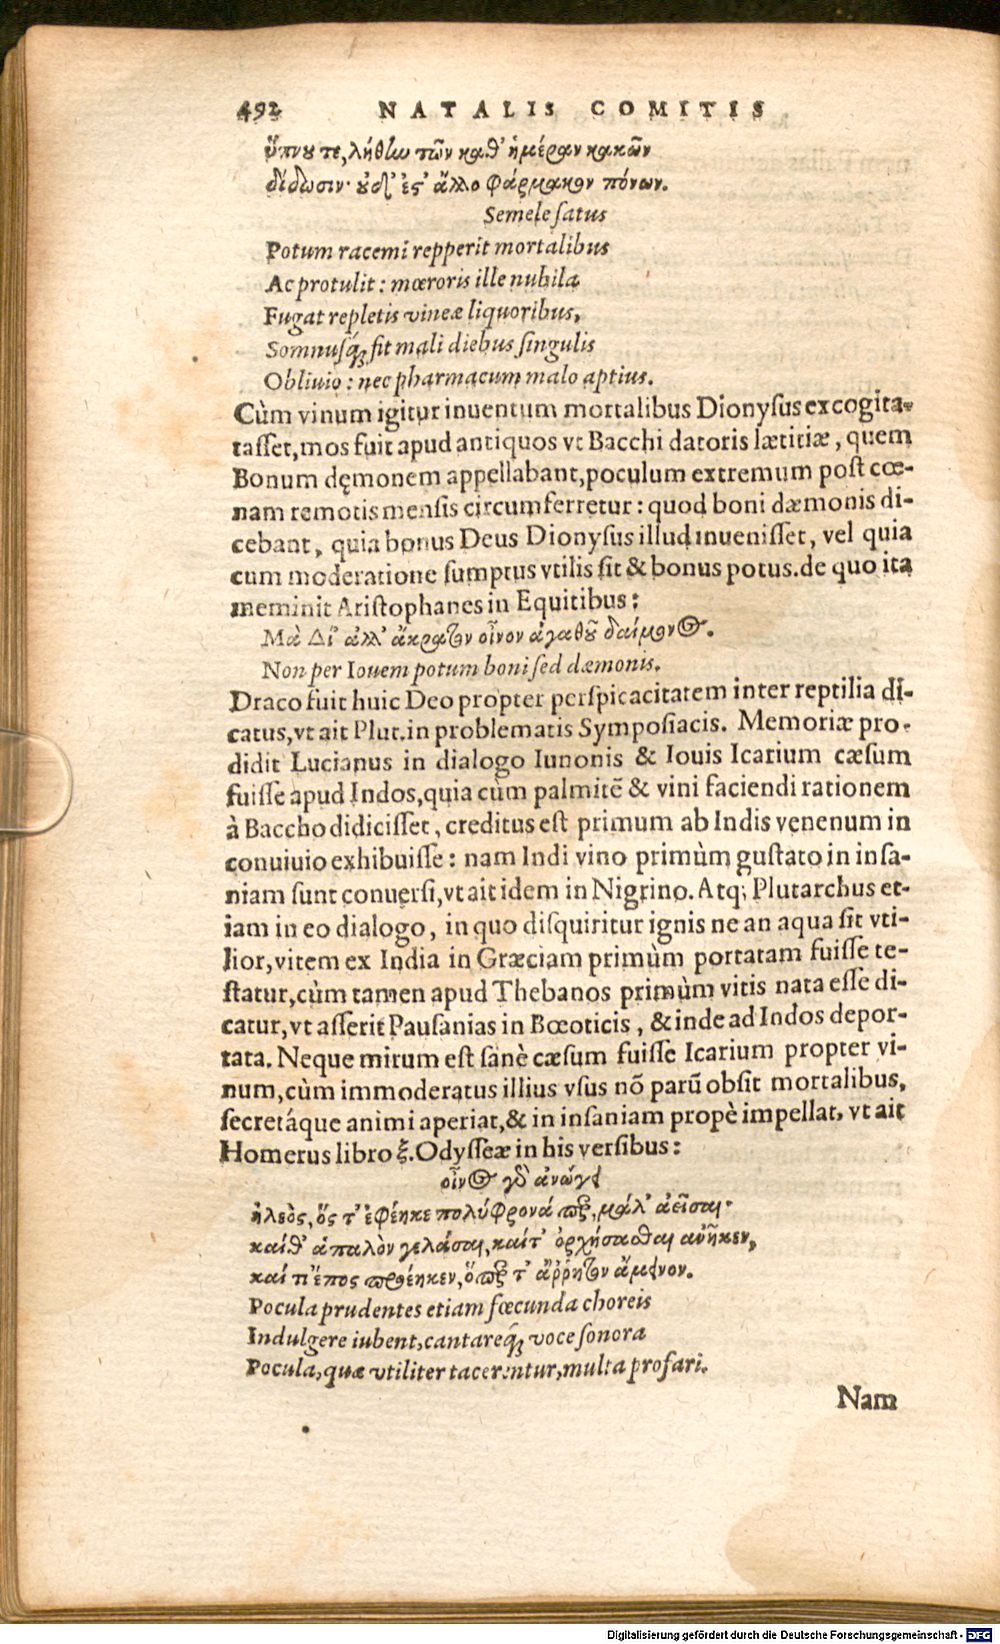 492 NATALIS COMITIS
ὕπνου τε, λήθην τῶν καθ' ἡμέραν κακῶν
δίδωσιν· οὐδ' ἔς' ἄλλο φάρμακον πόνων.
Semele ſatus
Potum racemi repperit mortalibus
Ac protulit: mœroris ille nubila
Fugat repletis vineæ liquoribus,
Somnuſq́ꝫ fit mali diebus ſingulis
Obliuio: nec pharmacum malo aptius.
Cùm vinum igitur inuentum mortalibus Dionyſus excogita-
taſſet, mos fuit apud antiquos vt Bacchi datoris lætitiæ, quem
Bonum dęmonem appellabant, poculum extremum poſt cœ-
nam remotis menſis circumferretur: quod boni dæmonis di-
cebant, quia bonus Deus Dionyſus illud inueniſſet, vel quia
cum moderatione ſumptus vtilis ſit & bonus potus. de quo ita
meminit Ariſtophanes in Equitibus:
Μὰ Δί' ἀλλ' ἄκρατον οἶνον ἀγαθοῦ δαίμονος.
Non per Iouem potum boni ſed dæmonis.
Draco fuit huic Deo propter perſpicacitatem inter reptilia di-
catus, vt ait Plut. in problematis Sympoſiacis. Memoriæ pro-
didit Lucianus in dialogo Iunonis & Iouis Icarium cæſum
fuiſſe apud Indos, quia cùm palmitē & vini faciendi rationem
à Baccho didiciſſet, creditus eſt primum ab Indis venenum in
conuiuio exhibuiſſe: nam Indi vino primùm guſtato in inſa-
niam ſunt conuerſi, vt ait idem in Nigrino. Atq; Plutarchus et-
iam in eo dialogo, in quo diſquiritur ignis ne an aqua ſit vti-
lior, vitem ex India in Græciam primùm portatam fuiſſe te-
ſtatur, cùm tamen apud Thebanos primùm vitis nata eſſe di-
catur, vt aſſerit Pauſanias in Bœoticis, & inde ad Indos depor-
tata. Neque mirum eſt ſanè cæſum fuiſſe Icarium propter vi-
num, cùm immoderatus illius vſus nō parū obſit mortalibus,
ſecretáque animi aperiat, & in inſaniam propè impellat, vt ait
Homerus libro ξ. Odyſſeæ in his verſibus:
οἶνος γὰρ ἀνώγει
ἠλεὸς, ὅς τ' ἐφέηκε πολύφρονά περ, μάλ' ἀεῖσαι·
καίθ' ἁπαλὸν γελάσαι, καίτ' ὀρχήσασθαι ἀνῆκεν,
καί τι ἔπος προέηκεν, ὅπερ τ' ἄῤῥητον ἄμεινον.
Pocula prudentes etiam fœcunda choreis
Indulgere iubent, cantareq́ꝫ voce ſonora
Pocula, quæ vtiliter tacerentur, multa profari.
Nam
Digitalisierung gefördert durch die Deutsche Forschungsgemeinschaft - DFG